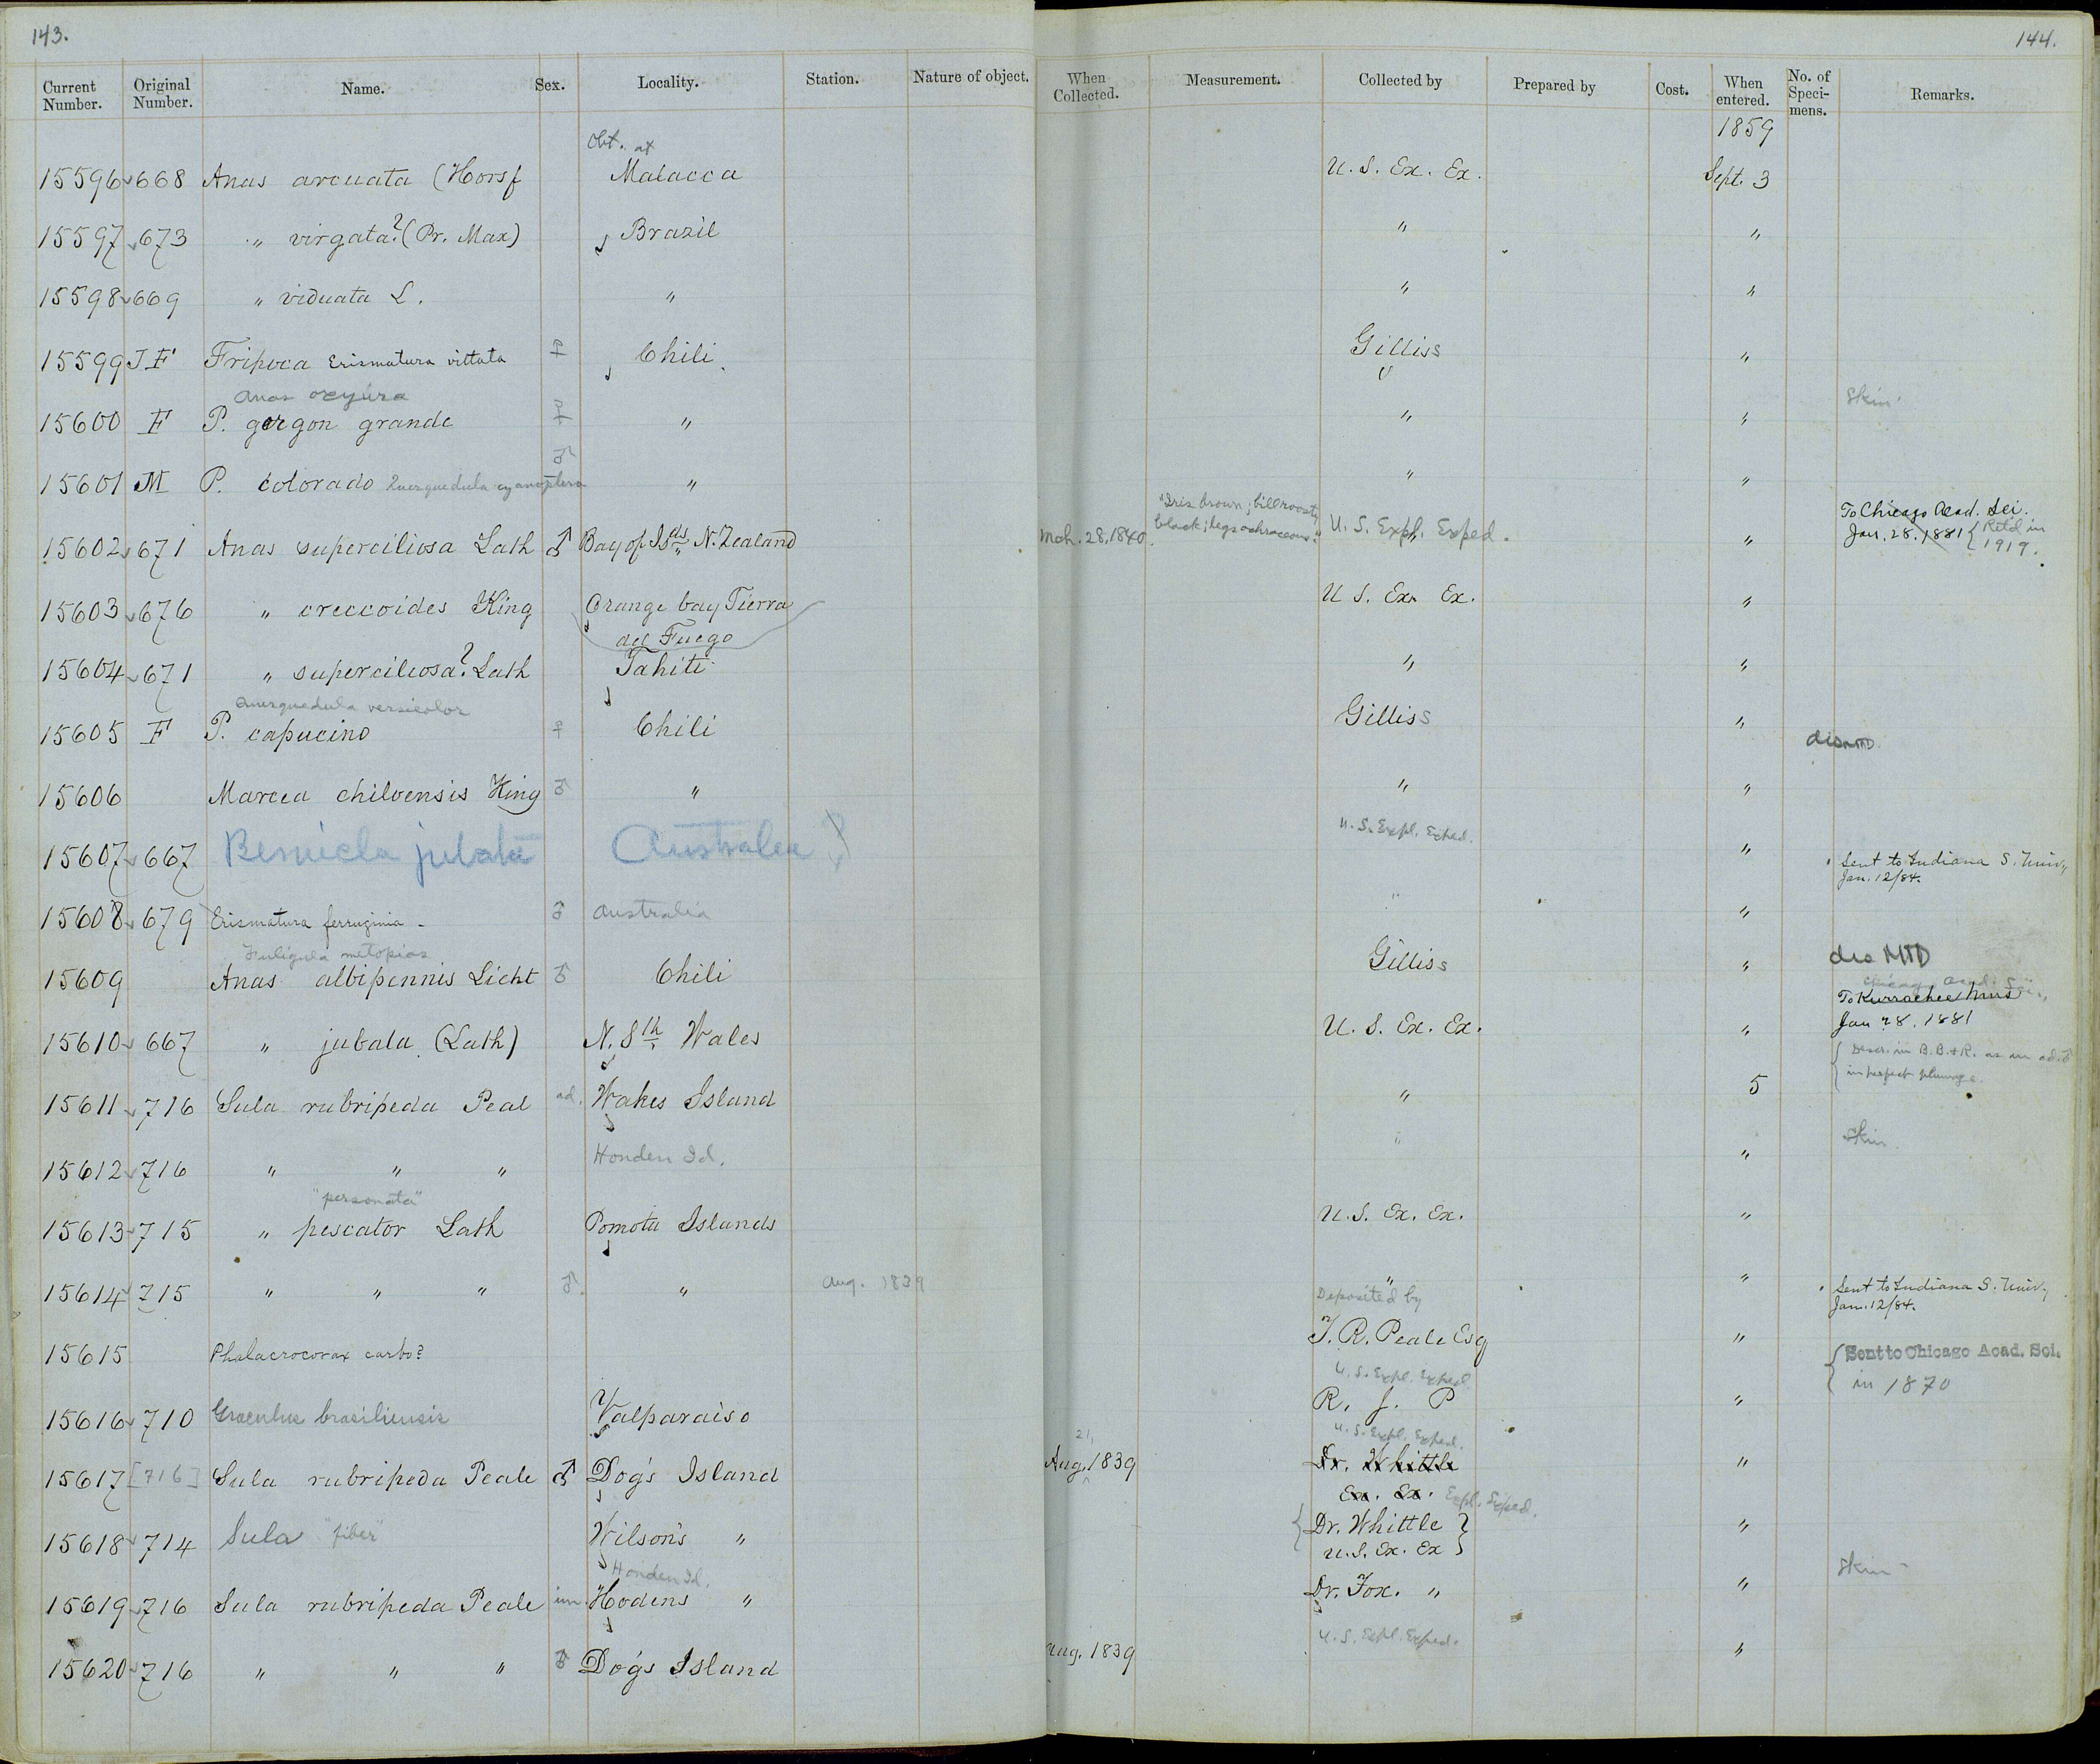 143.
144.
Current Number. Original Number. Name. Sex. Locality. Station. Nature of object. When Collected. Measurement. Collected by Prepared by Cost. When entered. No. of Speci-mens. Remarks.
1859
Obt. at
15596 668 Anas arcuata (Horsf Malacca U. S. Ex. Ex. Sept. 3
15597 673 " virgata? (Pr. Max) Brazil " "
15598 669 " viduata L. " " "
15599 J F Fripoca Erismatura vittata ♀ Chili Gilliss "
Anas oxyura
15600 F P. gergon grande ♀ " " " Skin
15601 M P. colorado Querquedula cyanoptera ♂ " " "
"Iris brown; bill
black; legs ochraceous."
To Chicago Acad. Sci.
15602 671 Anas superciliosa Lath ♂ Bay of Isds N. Zealand Mch. 28, 1840 U. S. Expl. Exped. " Jan. 28. 1881 { Ret'd in 1919.
15603 676 " creccoides King Orange bay Tierra del Fuego U S. Ex. Ex. "
15604 671 " superciliosa? Lath Tahiti " "
Querquedula versicolor
15605 F P. capucino ♀ Chili Gilliss "
15606 Mareca chiloensis King ♂ " " "
15607 667 Bernicla jubata Australia ? U. S. Expl. Exped. " Sent to Indiana S. Univ., Jan. 12/84.
15608 679 Erismatura ferruginia - ♂ Australia " "
Fuligula metopias
15609 Anas albipennis Licht ♂ Chili Gilliss "
Chicago Acad. Sci.,
To Kurrachee Mus
15610 667 " jubata (Lath) N. Sth Wales U. S. Ex. Ex. " Jan 28. 1881
{ Descr. in B. B. & R. as an ad. ♂
in perfect plumage.
15611 716 Sula rubripeda Peal ad. Wakes Island " 5
15612 716 " " " Honden Id. " " Skin
"personata"
15613 715 " pescator Lath Pomotu Islands U. S. Ex. Ex. "
15614 715 " " " ♂ " Aug. 1839 " " Sent to Indiana S. Univ., Jan. 12/84.
Deposited by
15615 Phalacrocorax carbo? T. R. Peale Esq " { Sent to Chicago Acad. Sci. in 1870
U. S. Expl. Exped.
15616 710 Graculus brasiliensis Valparaiso R. J. P "
U. S. Expl. Exped.
15617 [716] Sula rubripeda Peale ♂ Dog's Island Aug. 21, 1839 Dr. Whittle Ex. Ex. Expl. Exped. "
15618 714 Sula "fiber" Wilson's " { Dr. Whittle U. S. Ex. Ex } "
Honden Id.
15619 716 Sula rubripeda Peale im. Hodens " Dr. Fox. " " Skin
15620 716 " " " ♂ Dogs Island Aug. 1839 U. S. Expl. Exped. "